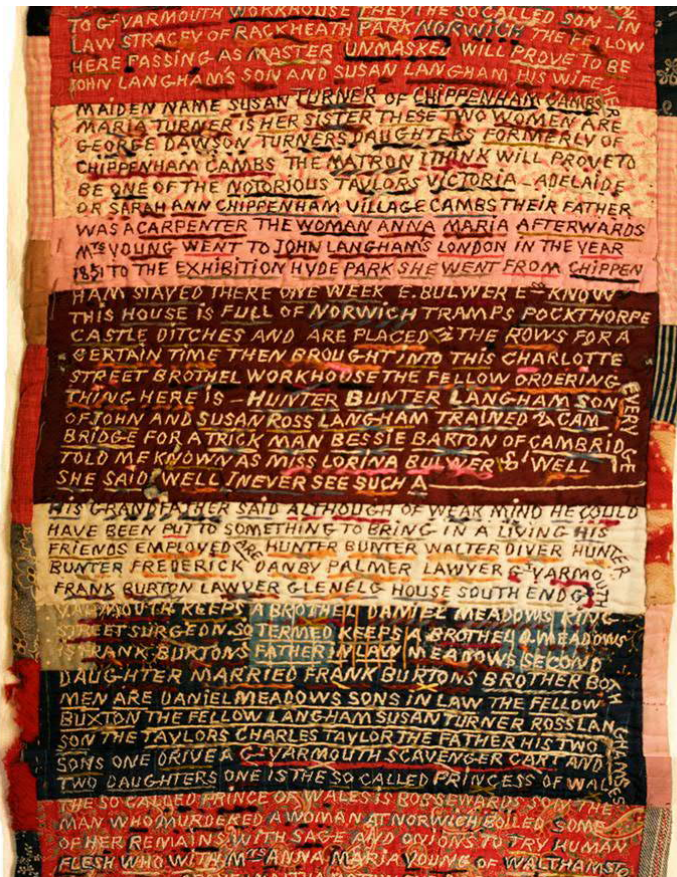 TO Gt YARMOUTH WORKHOUSE THEY THE SO CALLED SON-IN
LAW STRACEY OF RACKHEATH PARK NORWICH THE FELLOW
HERE PASSING AS MASTER UNMASKED WILL PROVE TO BE
JOHN LANGHAM'S SON AND SUSAN LANGHAM HIS WIFE HER
MAIDEN NAME SUSAN TURNER OF CHIPPENHAM CAMBS
MARIA TURNER IS HER SISTER THESE TWO WOMEN ARE
GEORGE DAWSON TURNERS DAUGHTERS FORMERLY OF
CHIPPENHAM CAMBS THE MATRON I THINK WILL PROVE TO
BE ONE OF THE NOTORIOUS TAYLORS VICTORIA-ADELAIDE
OR SARAH ANN CHIPPENHAM VILLAGE CAMBS THEIR FATHER
WAS A CARPENTER THE WOMAN ANNA MARIA AFTERWARDS
Mrs YOUNG WENT TO JOHN LANGHAM'S LONDON IN THE YEAR
1851 TO THE EXHIBITION HYDE PARK SHE WENT FROM CHIPPEN
HAM STAYED THERE ONE WEEK E. BULWER KNOW
THIS HOUSE IS FULL OF NORWICH TRAMPS POCKTHORPE
CASTLE DITCHES AND ARE PLACED IN THE ROWS FOR A
CERTAIN TIME THEN BROUGHT INTO THIS CHARLOTTE
STREET BROTHEL WORKHOUSE THE FELLOW ORDERING EVERY
THING HERE IS - HUNTER BUNTER LANGHAM SON
OF JOHN AND SUSAN ROSS LANGHAM TRAINED CAM
BRIDGE FOR A TRICK MAN BESSIE BARTON OF CAMBRIDGE
TOLD ME KNOWN AS MISS LORINA BULWER WELL
SHE SAID WELL I NEVER SEE SUCH A
HIS GRANDFATHER SAID ALTHOUGH OF WEAK MIND HE COULD
HAVE BEEN PUT TO SOMETHING TO BRING IN A LIVING HIS
FRIENDS EMPLOYED ARE HUNTER BUNTER WALTER DIVER HUNTER
BUNTER FREDERICK DANBY PALMER LAWYER Gt YARMOUTH
FRANK BURTON LAWYER GLENELG HOUSE SOUTH END Gt
YARMOUTH KEEPS A BROTHEL DANIEL MEADOWS KING
STREET SURGEON SO TERMED KEEPS A BROTHEL D. MEADOWS
IS FRANK BURTONS FATHER IN LAW MEADOWS SECOND
DAUGHTER MARRIED FRANK BURTONS BROTHER BOTH
MEN ARE DANIEL MEADOWS SONS IN LAW THE FELLOW
BUXTON THE FELLOW LANGHAM SUSAN TURNER ROSS LANGHAMSES
SON THE TAYLORS CHARLES TAYLOR THE FATHER HIS TWO
SONS ONE DRIVE A Gt YARMOUTH SCAVENGER CART AND
TWO DAUGHTERS ONE IS THE SO CALLED PRINCESS OF WALES
THE SO CALLED PRINCE OF WALES IS BOB SEWARDS SON THE
MAN WHO MURDERED A WOMAN AT NORWICH BOILED SOME
OF HER REMAINS WITH SAGE AND ONIONS TO TRY HUMAN
FLESH WHO WITH Mrs ANNA MARIA YOUNG OF WALTHAMSTO